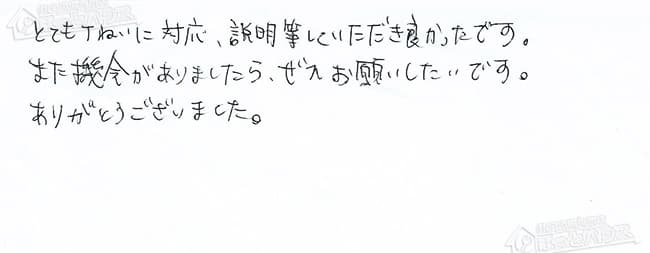 とてもTねいに対応、説明等していただき良かったです。
また機会がありましたら、ぜひお願いしたいです。
ありがとうございました。